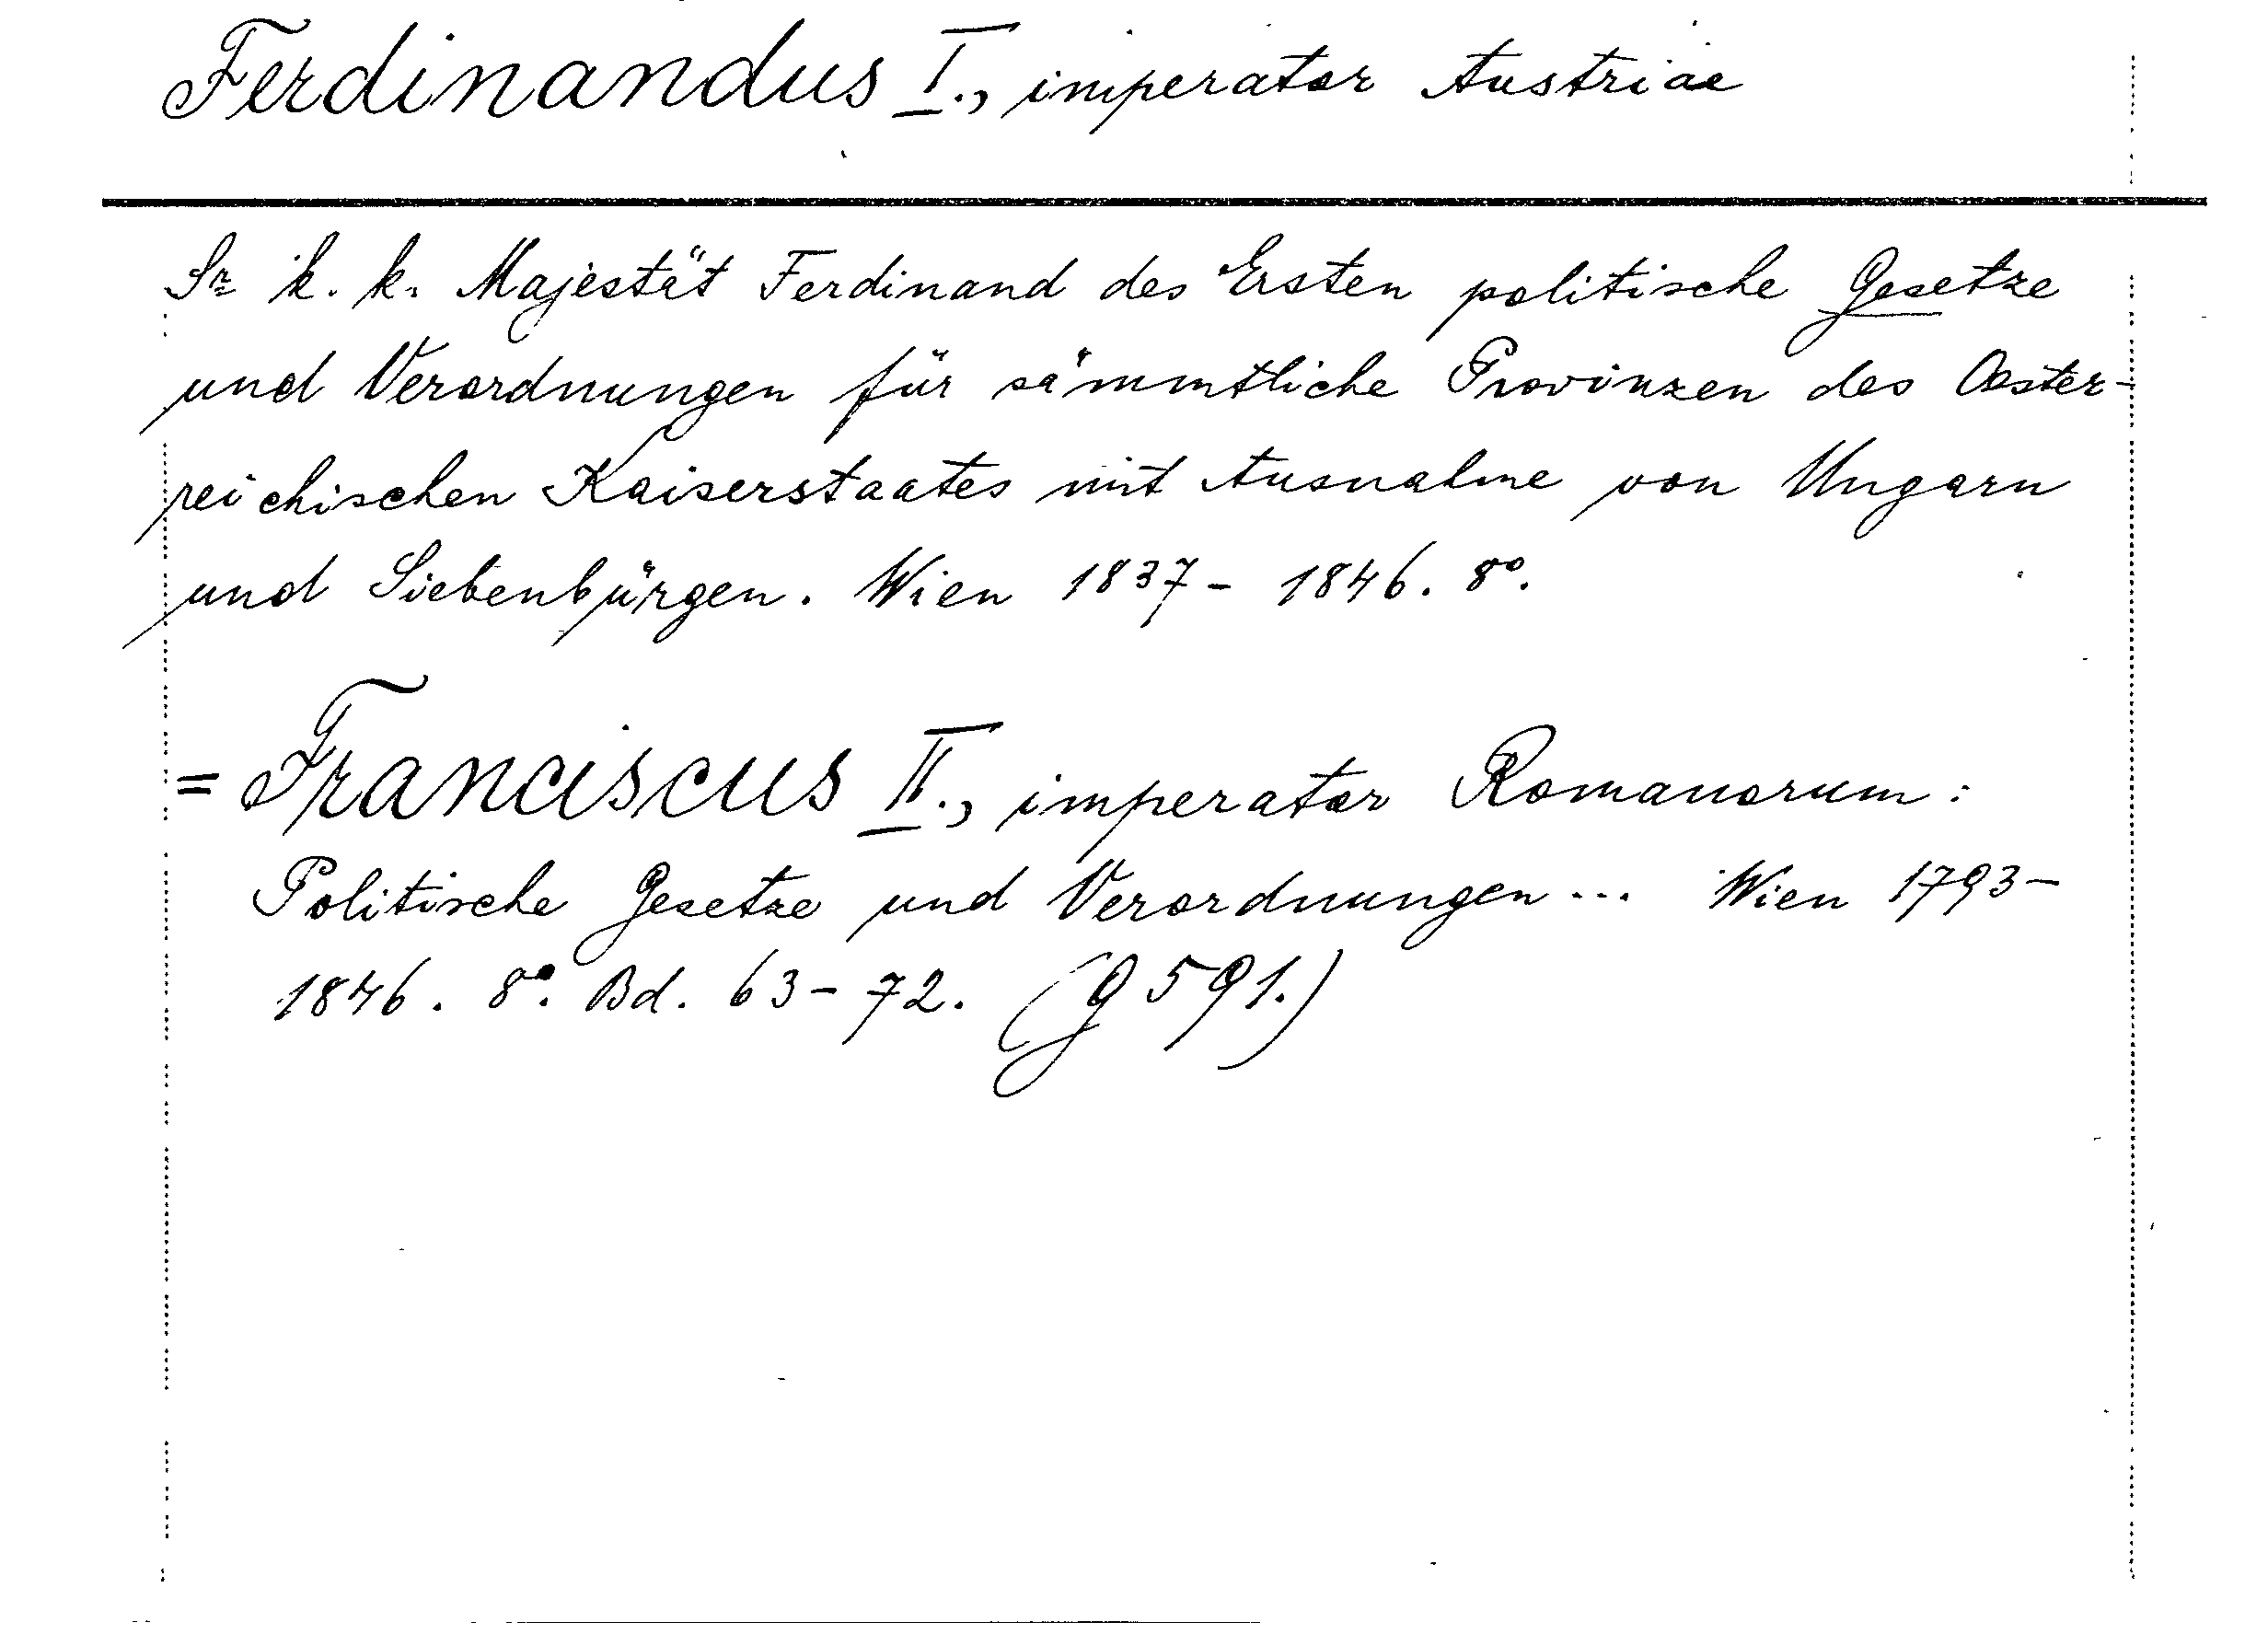 Ferdinandus I., imperator Austriae
Sr k. k. Majestät Ferdinand des Ersten politische Gesetze
und Verordnungen für sämmtliche Provinzen des Oester-
reichischen Kaiserstaates mit Ausnahme von Ungarn
und Siebenbürgen. Wien 1837 - 1846. 8°.
= Franciscus II., imperator Romanorum:
Politische Gesetze und Verordnungen ... Wien 1793-
1846. 8°. Bd. 63-72. (g 591.)